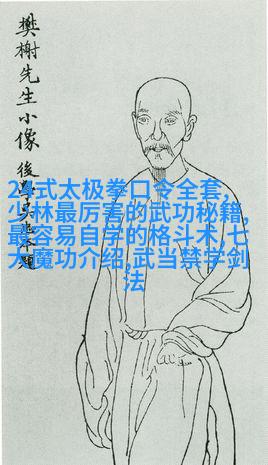 樊榭先生小像
後學
題
24式太极拳口令全套,
少林最厉害的武功秘籍,
最容易自学的格斗术,七
大魔功介绍,武当禁学剑
法